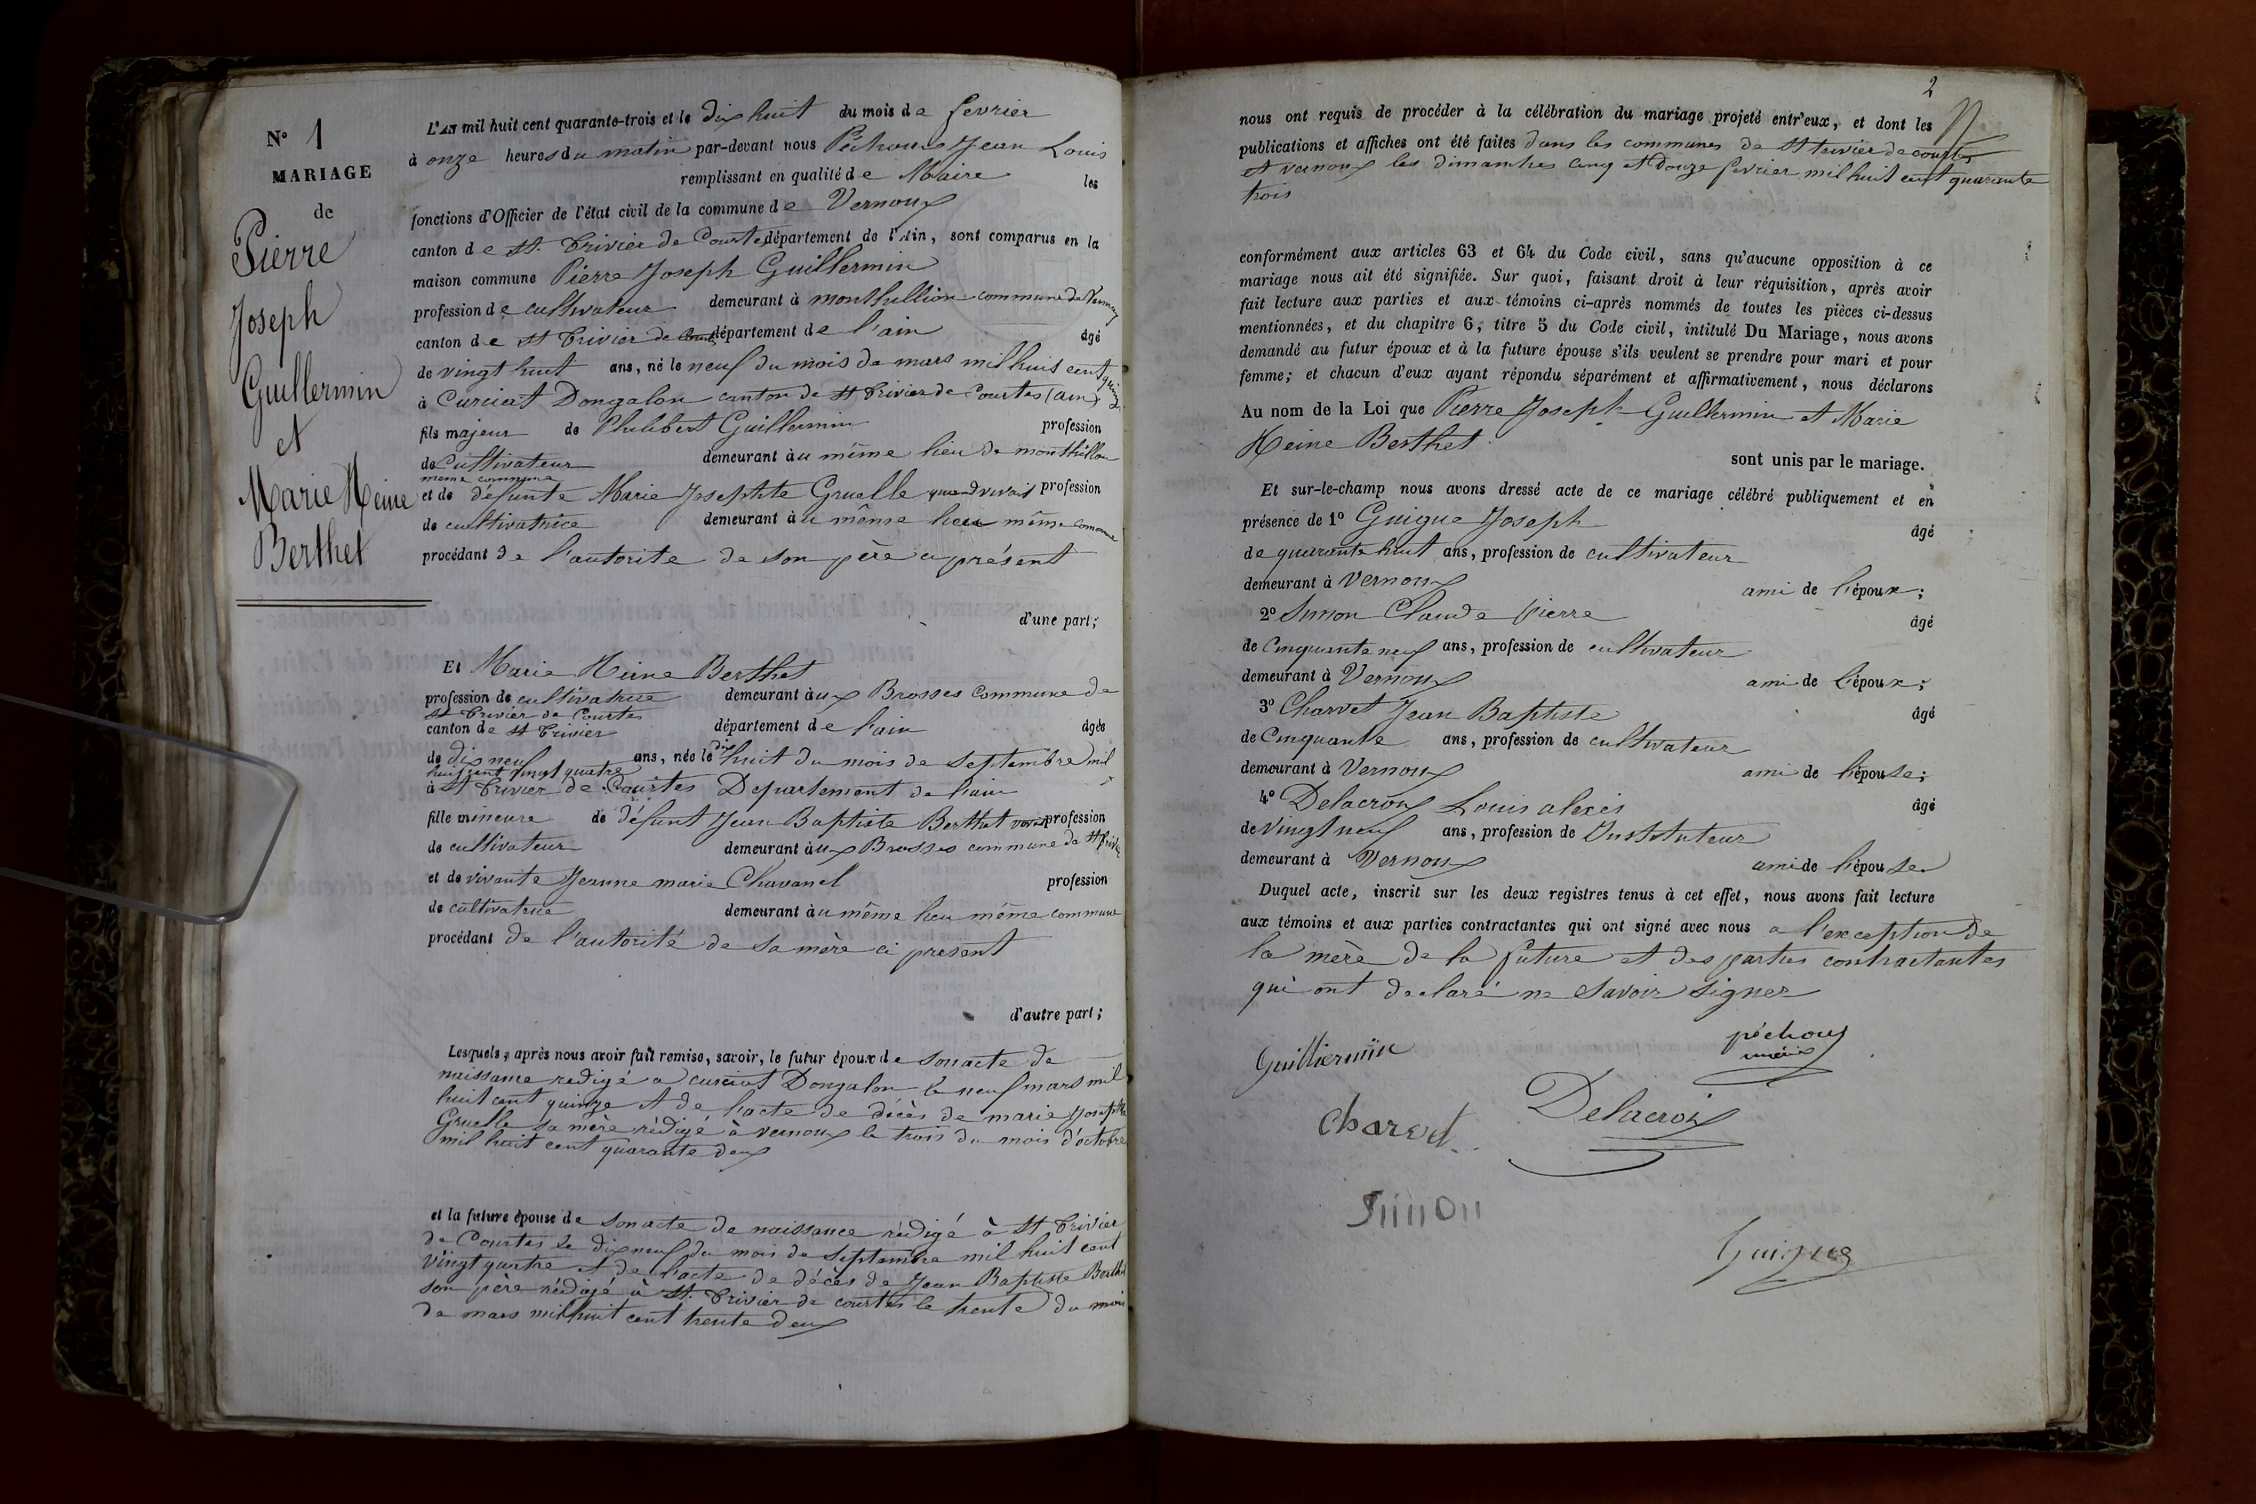 N° 1
MARIAGE
de
Pierre
Joseph
Guillermin
et
Marie Reine
Berthet
L'an mil huit cent quarante-trois et le dix huit du mois de fevrier
à onze heures du matin par-devant nous Péchoux Jean Louis
remplissant en qualité de Maire les
fonctions d'Officier de l'état civil de la commune de Vernoux
canton de St. Trivier de Courtes département de l'Ain, sont comparus en la
maison commune Pierre Joseph Guillermin
profession de cultivateur demeurant à monthillion commune de Vernoux
canton de St Trivier de Courtes département de l'ain âgé
de vingt huit ans, né le neuf du mois de mars mil huit cent quinze
à Curciat Dongalon canton de St Trivier de Courtes (ain)
fils majeur de Philibert Guillermin profession
de Cultivateur demeurant au même lieu de monthillon
meme commune
et de défunte Marie Josephte Gruelle quand vivait profession
de cultivatrice demeurant au même lieu même commune
procédant de l'autorite de son père ci présent
d'une part;
Et Marie Reine Berthet
profession de cultivatrice demeurant aux Brosses commune de
St Trivier de Courtes
canton de St Trivier département de l'ain âgée
de dix neuf ans, née le dix huit du mois de septembre mil
huit cent vingt quatre
à St Trivier de Courtes Departement de l'ain
fille mineure de défunt Jean Baptiste Berthet vivant profession
de cultivateur demeurant aux Brosses commune de St Trivier
et de vivante Jeanne marie Chavanel profession
de cultivatrice demeurant au même lieu même commune
procédant de l'autorité de sa mère ci present
d'autre part;
Lesquels, après nous avoir fait remise, savoir, le futur époux de son acte de
naissance redigé a curciat Dongalon le neuf mars mil
huit cent quinze et de l'acte de décès de marie Josephte
Gruelle sa mère rédigé à vernoux le trois du mois d'octobre
mil huit cent quarante deux
et la future épouse de son acte de naissance rédigé à St Trivier
de Courtes le dix neuf du mois de septembre mil huit cent
vingt quatre et de l'acte de décès de Jean Baptiste Berthet
son père rédigé à St. Trivier de courtes le trente du mois
de mars mil huit cent trente deux
2
nous ont requis de procéder à la célébration du mariage projeté entr'eux, et dont les
publications et affiches ont été faites dans les communes de St trivier de courtes
et vernoux les dimanches cinq et Douze fevrier mil huit cent quarante
trois
conformément aux articles 63 et 64 du Code civil, sans qu'aucune opposition à ce
mariage nous ait été signifiée. Sur quoi, faisant droit à leur réquisition, après avoir
fait lecture aux parties et aux témoins ci-après nommés de toutes les pièces ci-dessus
mentionnées, et du chapitre 6, titre 5 du Code civil, intitulé Du Mariage, nous avons
demandé au futur époux et à la future épouse s'ils veulent se prendre pour mari et pour
femme; et chacun d'eux ayant répondu séparément et affirmativement, nous déclarons
Au nom de la Loi que Pierre Joseph Guillermin et Marie
Reine Berthet
sont unis par le mariage.
Et sur-le-champ nous avons dressé acte de ce mariage célébré publiquement et en
présence de 1° Guigue Joseph âgé
de quarante huit ans, profession de cultivateur
demeurant à Vernoux ami de l'époux;
2° Simon Claude Pierre âgé
de Cinquante neuf ans, profession de cultivateur
demeurant à Vernoux ami de l'époux;
3° Charvet Jean Baptiste âgé
de Cinquante ans, profession de cultivateur
demeurant à Vernoux ami de l'épouse;
4° Delacroix Louis alexis âgé
de vingt neuf ans, profession de Instituteur
demeurant à Vernoux ami de l'épouse
Duquel acte, inscrit sur les deux registres tenus à cet effet, nous avons fait lecture
aux témoins et aux parties contractantes qui ont signé avec nous a l'exception de
la mère de la future et des parties contractantes
qui ont declaré ne savoir signer
Guilliermin
péchoux
maire
Charvet
Delacroix
Simon
Guigue